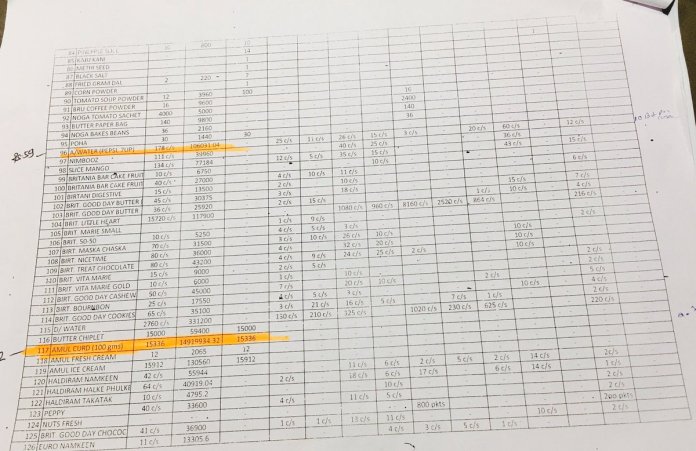 84 PINEAPPLE SLICE 800 10
85 KABU KANI 14
86 METHI SEED 1
87 BLACK SALT 7
88 FRIED GRAM DAL 2 220 1
89 CORN POWDER 100
90 TOMATO SOUP POWDER 12 3960 16
91 BRU COFFEE POWDER 16 9600 2400
92 NOGA TOMATO SACHET 4000 5000 140
93 BUTTER PAPER BAG 140 9800 36
94 NOGA BAKES BEANS 36 2160
95 POHA 30 1440 30 3 c/s 20 c/s 60 c/s 12 c/s
96 A/WATER (PEPSI, 7UP) 178 c/s 106031.04 25 c/s 11 c/s 26 c/s 15 c/s 36 c/s
97 NIMBOOZ 111 c/s 39960 40 c/s 25 c/s 43 c/s 15 c/s
98 SLICE MANGO 134 c/s 77184 12 c/s 5 c/s 35 c/s 15 c/s
99 BRITANIA BAR CAKE FRUIT 10 c/s 6750 10 c/s 6 c/s
100 BRITANIA BAR CAKE FRUIT 40 c/s 27000 4 c/s 10 c/s 11 c/s
101 BIRTANI DIGESTIVE 15 c/s 13500 2 c/s 15 c/s 7 c/s
102 BRIT. GOOD DAY BUTTER 45 c/s 30375 3 c/s 18 c/s 1 c/s 10 c/s 4 c/s
103 BRIT. GOOD DAY BUTTER 36 c/s 25920 2 c/s 15 c/s 2520 c/s 864 c/s 216 c/s
104 BRIT. LITTLE HEART 15720 c/s 117900 1080 c/s 960 c/s 8160 c/s
105 BRIT. MARIE SMALL 1 c/s 9 c/s 2 c/s
106 BRIT. 50-50 10 c/s 5250 4 c/s 5 c/s 3 c/s 10 c/s
107 BIRT. MASKA CHASKA 70 c/s 31500 3 c/s 10 c/s 26 c/s 10 c/s 10 c/s
108 BIRT. NICETIME 80 c/s 36000 32 c/s 20 c/s
109 BIRT. TREAT CHOCOLATE 80 c/s 43200 4 c/s 9 c/s 24 c/s 25 c/s 2 c/s 2 c/s
110 BRIT. VITA MARIE 15 c/s 9000 2 c/s 5 c/s 2 c/s
111 BRIT. VITA MARIE GOLD 10 c/s 6000 1 c/s 10 c/s 2 c/s 5 c/s
112 BIRT. GOOD DAY CASHEW 50 c/s 45000 7 c/s 20 c/s 10 c/s 10 c/s 4 c/s
113 BIRT. BOURBON 25 c/s 17550 2 c/s 5 c/s 3 c/s 7 c/s 1 c/s 2 c/s
114 BRIT. GOOD DAY COOKIES 65 c/s 35100 3 c/s 21 c/s 16 c/s 5 c/s 230 c/s 625 c/s 220 c/s
115 D/ WATER 2760 c/s 331200 150 c/s 210 c/s 325 c/s 1020 c/s
116 BUTTER CHIPLET 15000 59400 15000
117 AMUL CURD (100 gms) 15336 14919934.32 15336
118 AMUL FRESH CREAM 12 2065 12
119 AMUL ICE CREAM 15912 130560 15912 2 c/s
120 HALDIRAM NAMKEEN 42 c/s 55944 11 c/s 6 c/s 2 c/s 5 c/s 2 c/s 14 c/s 2 c/s
121 HALDIRAM HALKE PHULKE 64 c/s 40919.04 2 c/s 18 c/s 6 c/s 17 c/s 6 c/s 14 c/s 1 c/s
122 HALDIRAM TAKATAK 10 c/s 4795.2 10 c/s 2 c/s
123 PEPPY 40 c/s 33600 4 c/s 11 c/s 5 c/s 200 pkts
124 NUTS FRESH 800 pkts 2 c/s
125 BRIT. GOOD DAY CHOCOC 41 c/s 36900 1 c/s 1 c/s 13 c/s 11 c/s 10 c/s 2 c/s
126 EURO NAMKEEN 11 c/s 13305.6 4 c/s 3 c/s 5 c/s 1 c/s